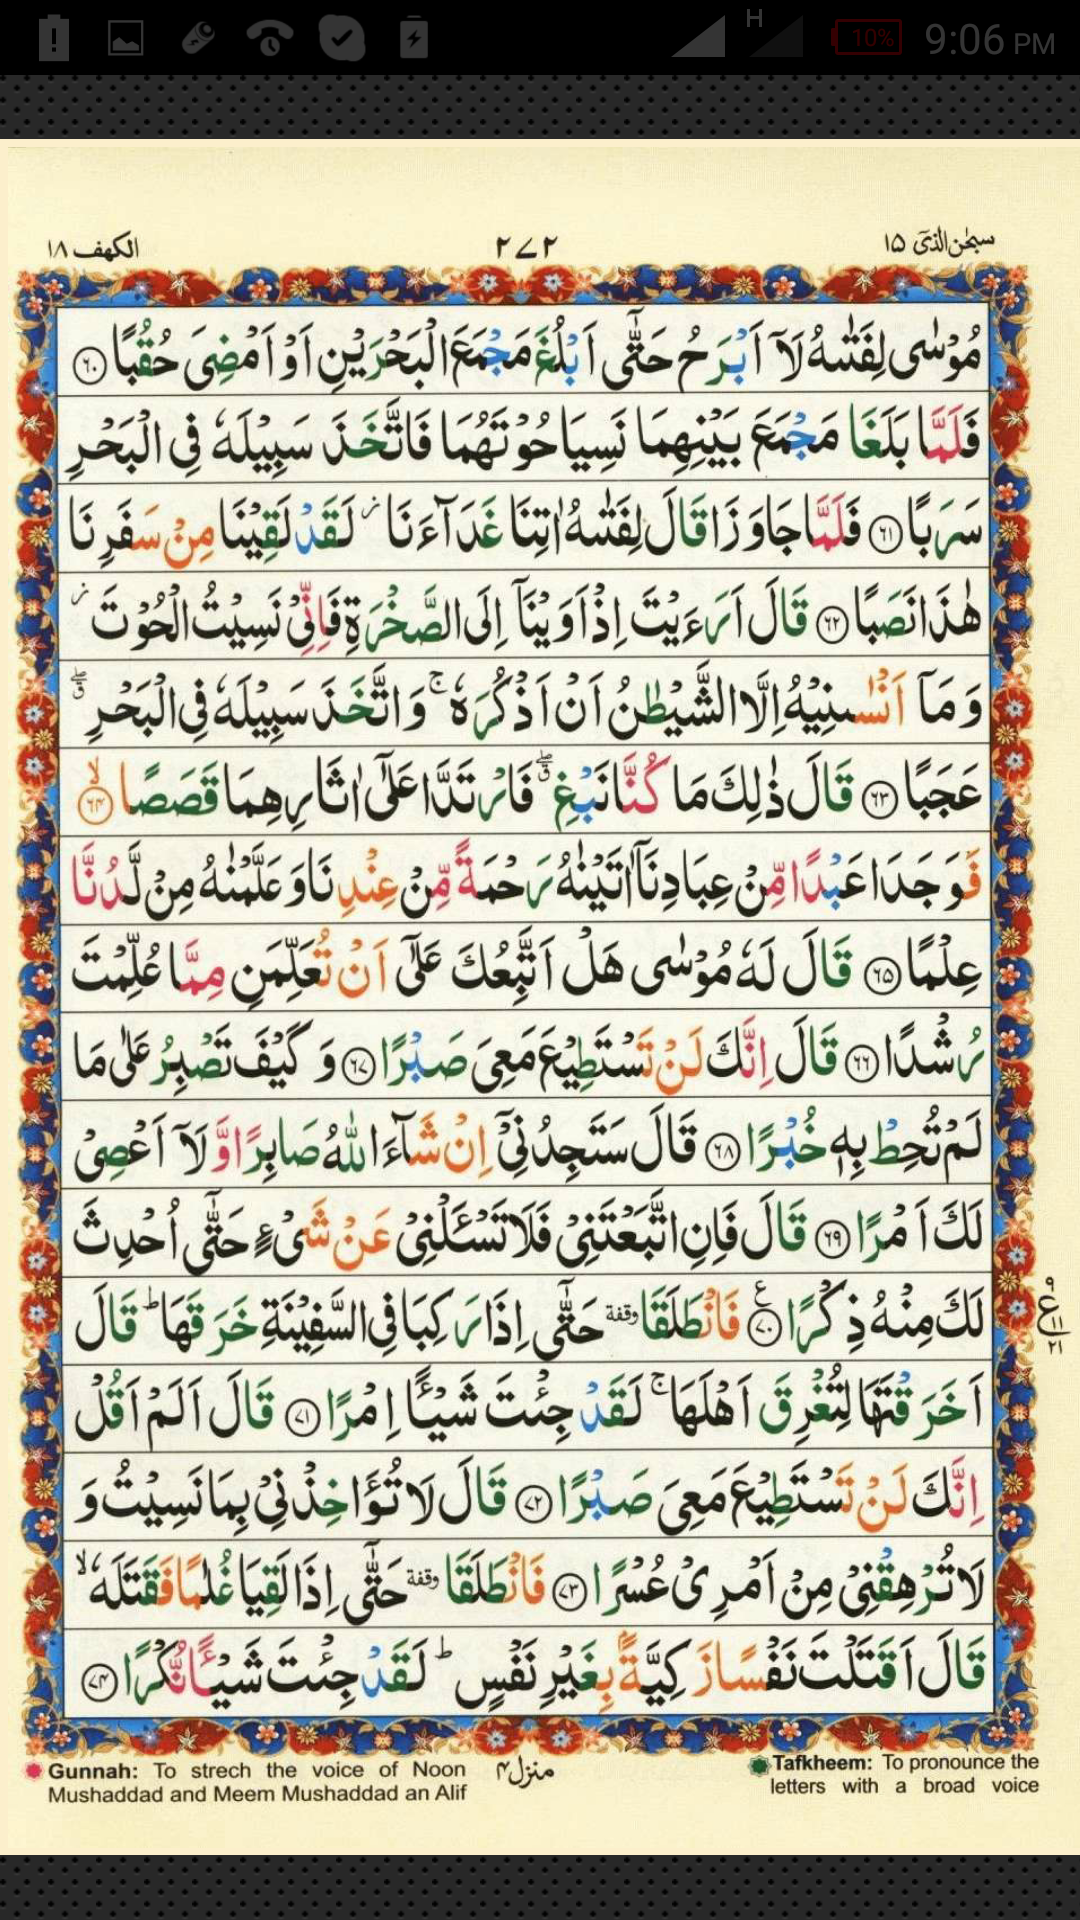 H 10% 9:06 PM
سبحٰن الذیٓ ١٥ ٢٧٢ الكهف ١٨
مُوْسٰى لِفَتٰىهُ لَاۤ اَبْرَحُ حَتّٰۤى اَبْلُغَ مَجْمَعَ الْبَحْرَيْنِ اَوْ اَمْضِىَ حُقُبًا ﴿٦٠﴾
فَلَمَّا بَلَغَا مَجْمَعَ بَيْنِهِمَا نَسِيَا حُوْتَهُمَا فَاتَّخَذَ سَبِيْلَهٗ فِى الْبَحْرِ
سَرَبًا ﴿٦١﴾ فَلَمَّا جَاوَزَا قَالَ لِفَتٰىهُ اٰتِنَا غَدَآءَنَا ز لَقَدْ لَقِيْنَا مِنْ سَفَرِنَا
هٰذَا نَصَبًا ﴿٦٢﴾ قَالَ اَرَءَيْتَ اِذْ اَوَيْنَاۤ اِلَى الصَّخْرَةِ فَاِنِّىْ نَسِيْتُ الْحُوْتَ ز
وَ مَاۤ اَنْسٰىنِيْهُ اِلَّا الشَّيْطٰنُ اَنْ اَذْكُرَهٗ ۚ وَ اتَّخَذَ سَبِيْلَهٗ فِى الْبَحْرِ ۖق
عَجَبًا ﴿٦٣﴾ قَالَ ذٰلِكَ مَا كُنَّا نَبْغِ ۖق فَارْتَدَّا عَلٰٓى اٰثَارِهِمَا قَصَصًا ۙ﴿٦٤﴾
فَوَجَدَا عَبْدًا مِّنْ عِبَادِنَاۤ اٰتَيْنٰهُ رَحْمَةً مِّنْ عِنْدِنَا وَ عَلَّمْنٰهُ مِنْ لَّدُنَّا
عِلْمًا ﴿٦٥﴾ قَالَ لَهٗ مُوْسٰى هَلْ اَتَّبِعُكَ عَلٰٓى اَنْ تُعَلِّمَنِ مِمَّا عُلِّمْتَ
رُشْدًا ﴿٦٦﴾ قَالَ اِنَّكَ لَنْ تَسْتَطِيْعَ مَعِىَ صَبْرًا ﴿٦٧﴾ وَ كَيْفَ تَصْبِرُ عَلٰى مَا
لَمْ تُحِطْ بِهٖ خُبْرًا ﴿٦٨﴾ قَالَ سَتَجِدُنِىْۤ اِنْ شَآءَ اللّٰهُ صَابِرًا وَّ لَاۤ اَعْصِىْ
لَكَ اَمْرًا ﴿٦٩﴾ قَالَ فَاِنِ اتَّبَعْتَنِىْ فَلَا تَسْـَٔلْنِىْ عَنْ شَىْءٍ حَتّٰۤى اُحْدِثَ
لَكَ مِنْهُ ذِكْرًا ﴿٧٠﴾ ع فَانْطَلَقَا وقفة حَتّٰۤى اِذَا رَكِبَا فِى السَّفِيْنَةِ خَرَقَهَا ؕ قَالَ
٩ ع ١١ ٢١
اَخَرَقْتَهَا لِتُغْرِقَ اَهْلَهَا ۚ لَقَدْ جِئْتَ شَيْـًٔا اِمْرًا ﴿٧١﴾ قَالَ اَلَمْ اَقُلْ
اِنَّكَ لَنْ تَسْتَطِيْعَ مَعِىَ صَبْرًا ﴿٧٢﴾ قَالَ لَا تُؤَاخِذْنِىْ بِمَا نَسِيْتُ وَ
لَا تُرْهِقْنِىْ مِنْ اَمْرِىْ عُسْرًا ﴿٧٣﴾ فَانْطَلَقَا وقفة حَتّٰۤى اِذَا لَقِيَا غُلٰمًا فَقَتَلَهٗ ۙ
قَالَ اَقَتَلْتَ نَفْسًا زَكِيَّةًۢ بِغَيْرِ نَفْسٍ ؕ لَقَدْ جِئْتَ شَيْـًٔا نُّكْرًا ﴿٧٤﴾
Gunnah: To strech the voice of Noon
Mushaddad and Meem Mushaddad an Alif
منزل ٤
Tafkheem: To pronounce the
letters with a broad voice